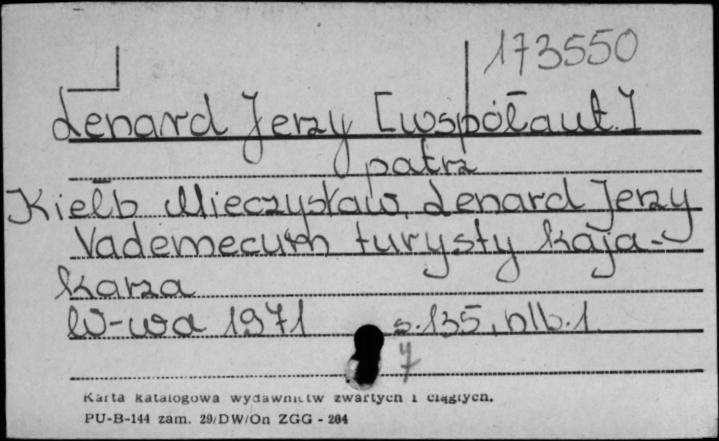 173550
Lenard Jerzy [współaut.]
patrz
Kiełb Mieczysław, Lenard Jerzy
Vademecum turysty kaja-
karza
W-wa 1971 s. 135, nlb. 1
7
Karta katalogowa wydawnictw zwartych i ciągłych.
PU-B-144 zam. 29/DW/On ZGG - 204